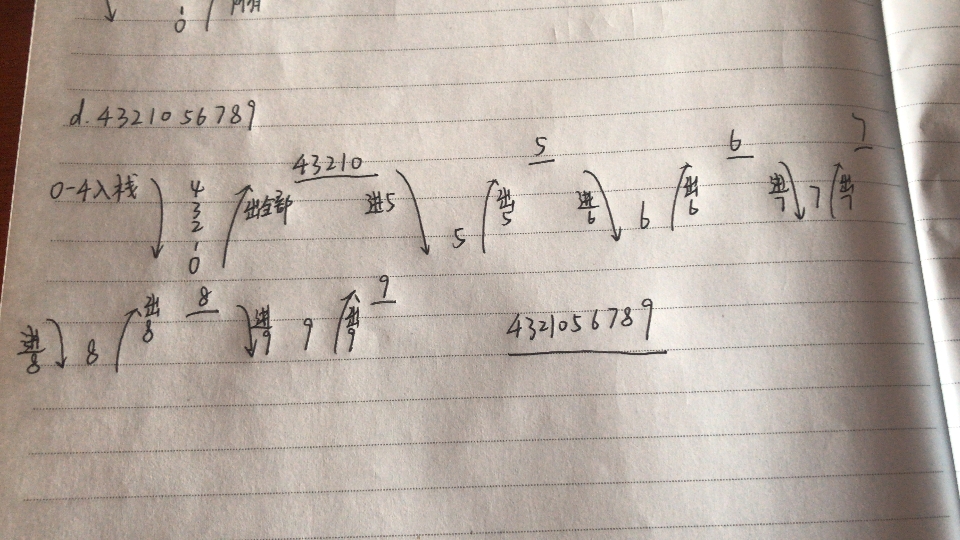 0 所有
d. 4321056789
43210 5 6 7
0-4入栈 4 3 2 1 0 出全部 进5 5 出5 进6 6 出6 进7 7 出7
8 9
进8 8 出8 进9 9 出9 4321056789